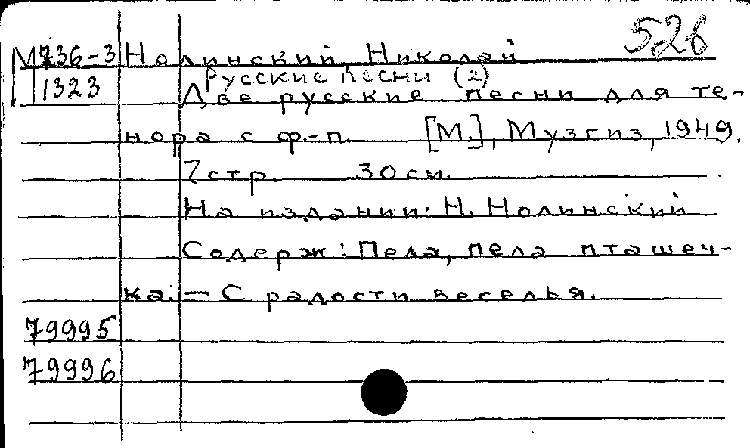 528
М 736-3 Нолинский, Николай
1323 Русские песни (2)
Две русские песни для те-
нора с ф.-п. [М.], Музгиз, 1949.
7 стр. 30 см.
На издании: Н. Нолинский
Содерж: Пела, пела пташеч-
ка. — С радости веселья.
79995
79996